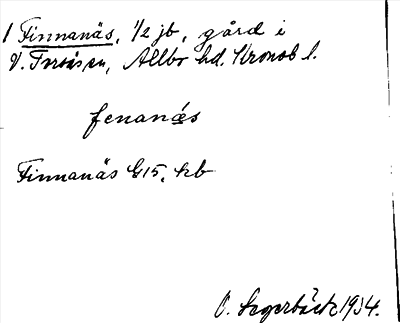 1 Finnanäs, 1/2 jb, gård i
V. Torsås sn, Allbo hd. Kronob l.
fenanäs
Finnanäs G15, kb
O. Segerbäck 1934.